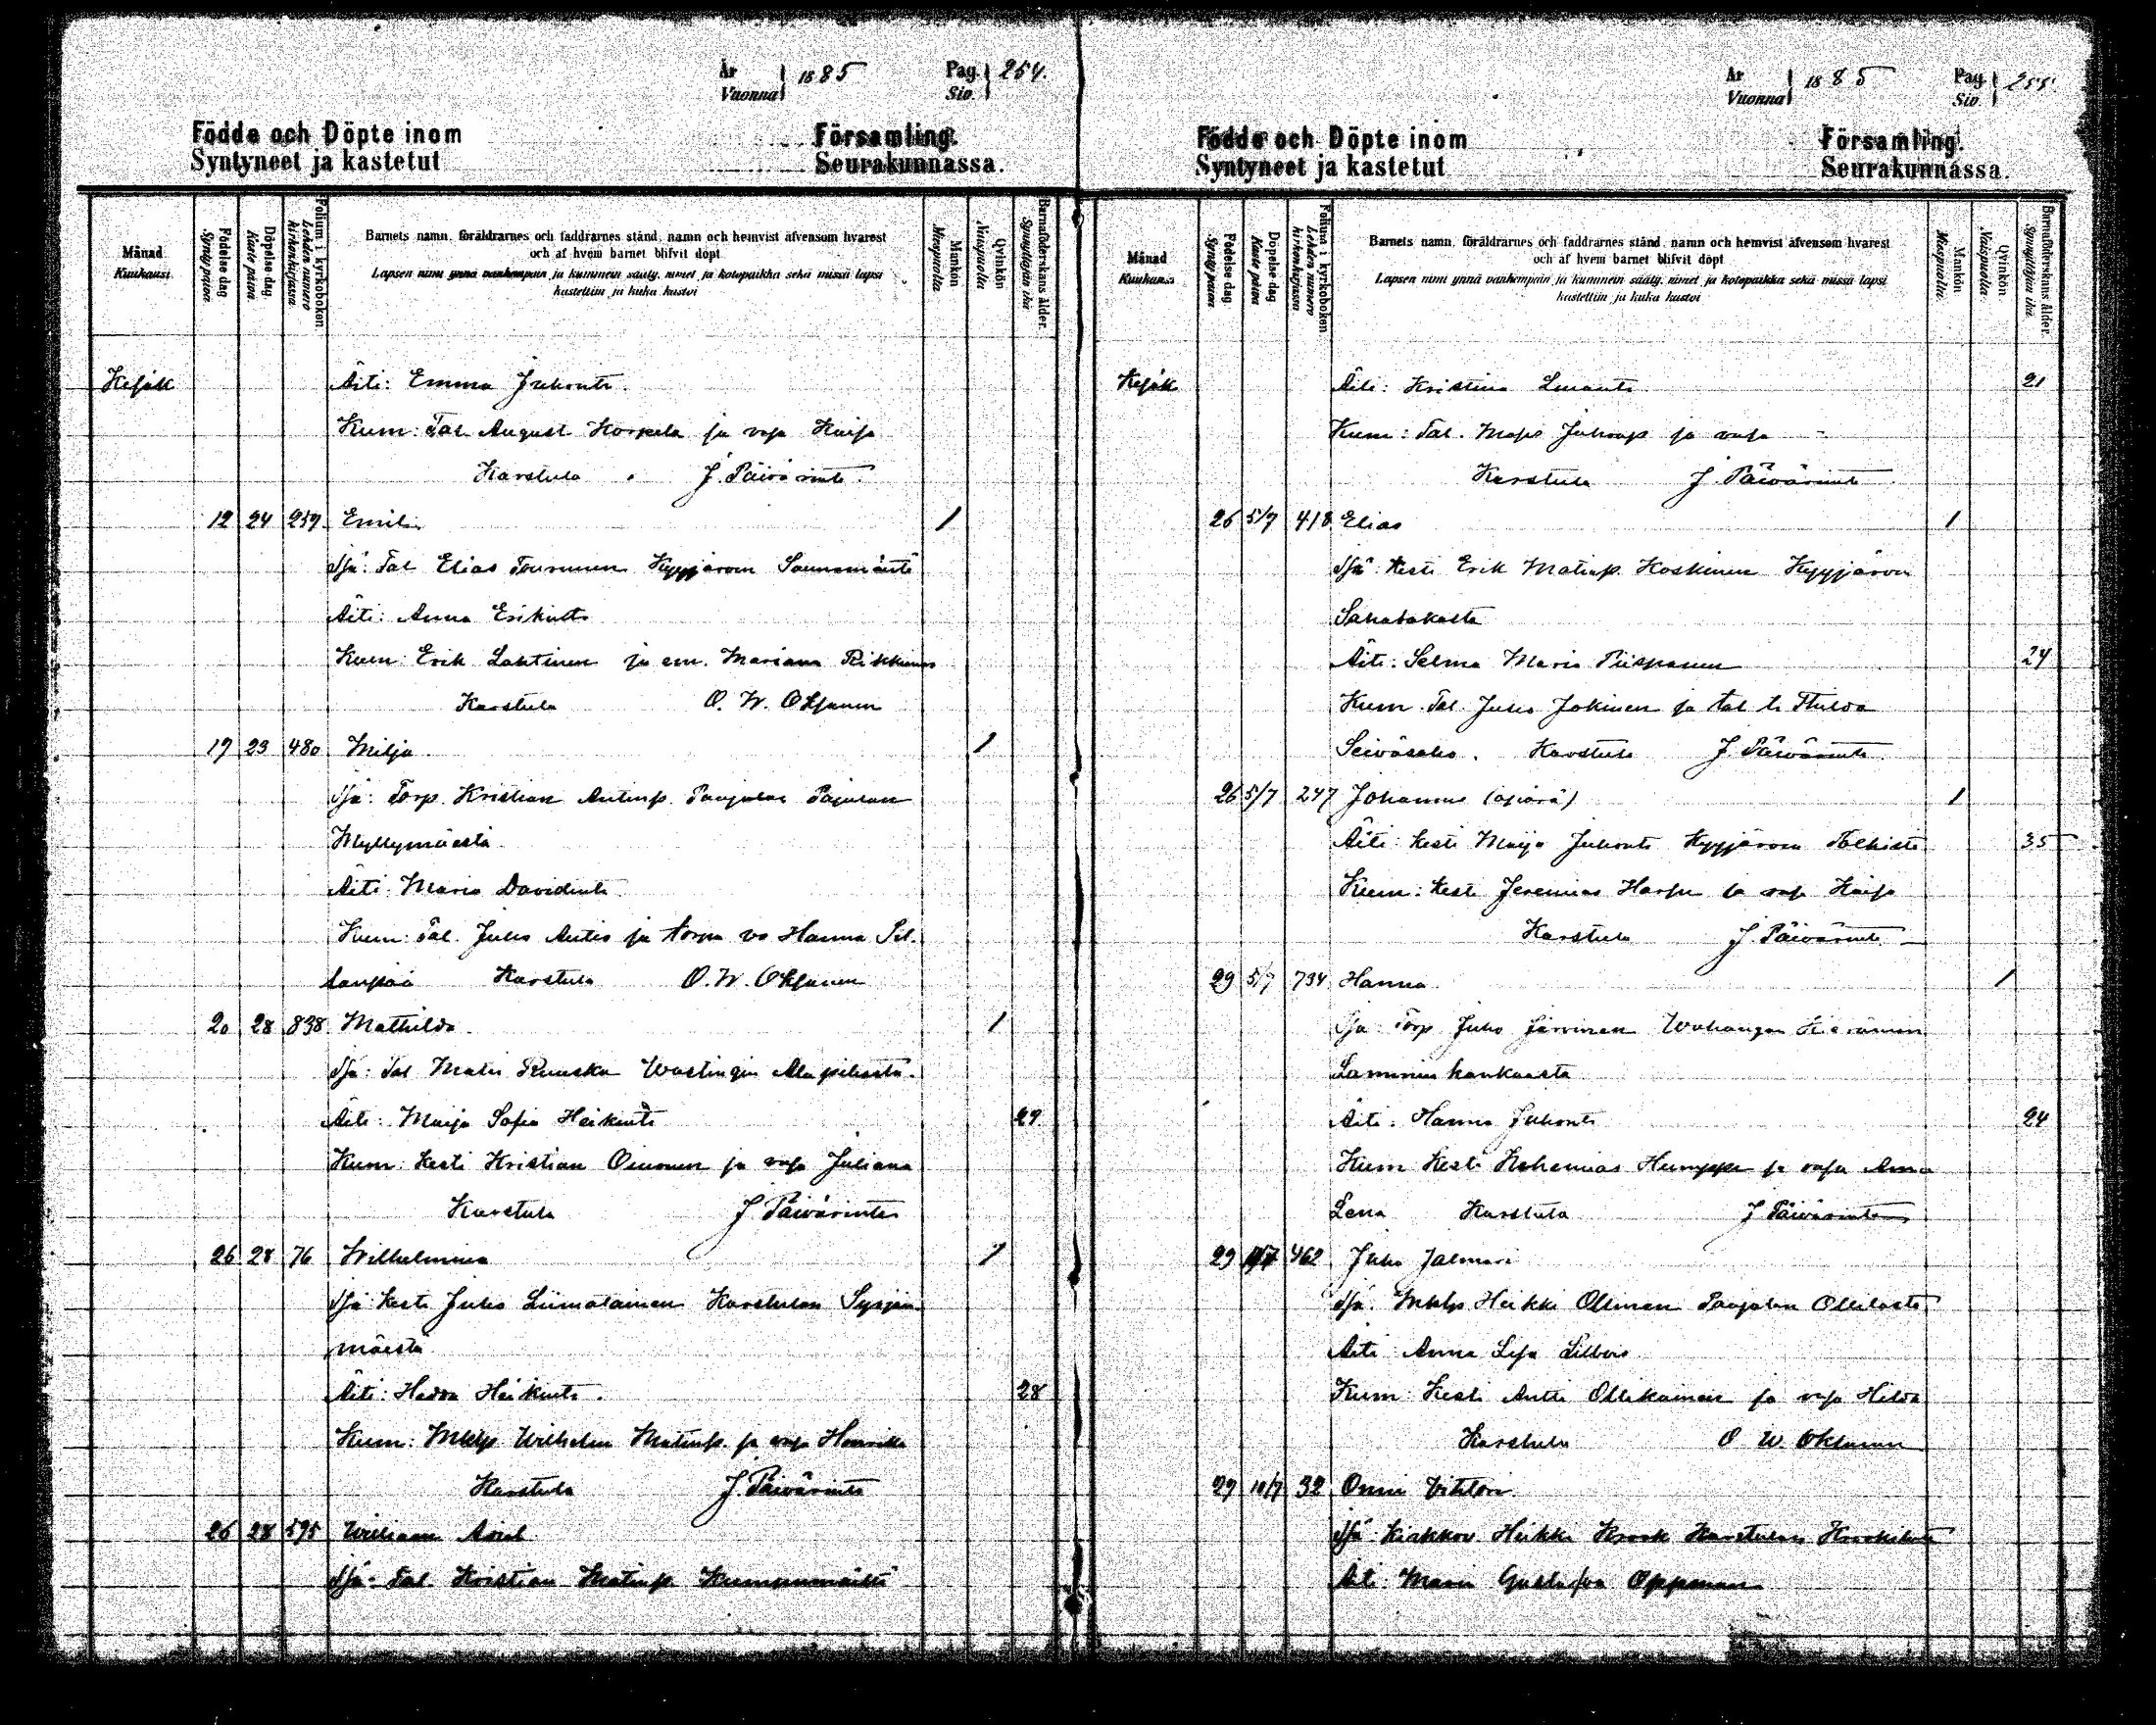 År
Vuonna
1885
Pag.
Siv.
254.
Födde och Döpte inom
Syntyneet ja kastetut
Församling.
Seurakunnassa.
Månad
Kuukausi
Födelse dag
Synty päivä
Döpelse dag
Kaste päivä
Folium i kyrkoboken
Lehden numero
kirkonkirjassa
Barnets namn, föräldrarnes och faddrarnes stånd, namn och hemvist äfvensom hvarest
och af hvem barnet blifvit döpt
Lapsen nimi ynnä vanhempain ja kummein sääty, nimet ja kotopaikka sekä missä lapsi
kastettiin ja kuka kastoi
Mankön
Miespuolia
Qvinkön
Naispuolia
Barnaföderskans ålder.
Synnyttäjän ikä
Kesäk Äiti: Emma Juhont.
Kum: Tal. August Korpela ja vaja Kaisa
Karstula J. Päivärinta
12 24 259 Emil 1
Isä: Tal Elias Tourunen Kyyjärven Saunamäeltä
Äiti: Anna Erikint.
Kum: Erik Lahtinen ja em. Mariana
Karstula O. W.
19 23 480 Milja. 1
Isä: Torp. Kristian Antinp. Paajalan
Myllymäestä
Äiti: Maria Davidint.
Kum: Tal. Juho Antio ja torpn vo Hanna Sel.
Karstula O. W.
20 28 838 Mathilda. 1
Isä: Tal Matti Ruuska Wastingin Alapihasta.
Äiti: Maija Sofia Heikint. 29
Kum: Kesti Kristian Oinonen ja vaja Juliana
Karstula J Päivärinta
26 28 76 Wilhelmina 1
Isä Kesti Juho Liimatainen Karstulan
mäestä
Äiti: Hedva Heikint. 28
Kum: Mklp Wilhelm Matinp. ja vaja Henrika
Karstula J. Päivärinta
26 28 595 William Axel
Isä: Tal. Kristian Matinp.
År
Vuonna
1885
Pag.
Siv.
255
Födde och Döpte inom
Syntyneet ja kastetut
Församling.
Seurakunnassa.
Månad
Kuukausi
Födelse dag
Synty päivä
Döpelse dag
Kaste päivä
Folium i kyrkoboken
Lehden numero
kirkonkirjassa
Barnets namn, föräldrarnes och faddrarnes stånd, namn och hemvist äfvensom hvarest
och af hvem barnet blifvit döpt
Lapsen nimi ynnä vanhempain ja kummein sääty, nimet ja kotopaikka sekä missä lapsi
kastettiin ja kuka kastoi
Mankön
Miespuolia
Qvinkön
Naispuolia
Barnaföderskans ålder.
Synnyttäjän ikä
Kesäk Äiti: Kristina 21
Kum: Tal. ja vaja -
Karstula J. Päivärinta
26 5/7 418 Elias 1
Isä: Kesti Erik Matinp. Koskinen Kyyjärven
Sahatakasta
Äiti: Selma Maria Piispanen 24
Kum. Tal. Juho Jokinen ja tal. tr Hulda
Karstula J. Päivärinta
26 5/7 247 Johannes (äpärä) 1
Äiti: Kesti Maija Juhont. Kyyjärven 35
Kum: Kesti Jeremias Harju ja vaja Kaisa
Karstula J. Päivärinta
29 5/7 734 Hanna 1
Isä: Torp Juho Järvinen Wahangan
Lamminkankaasta
Äiti: Hanna Juhont. 24
Kum Kesti Nehemias Humppi ja vaja Anna
Lena Karstula J Päivärinta
29 462 Juho Jalmari
Isä: Mklp. Heikki Ollinen Paajalan Ollilasta
Äiti Anna
Kum: Kesti Antti Ollikainen ja vaja Hilda
Karstula O W.
29 10/7 32 Onni Vihtori
Isä: Heikki Krook Karstulan
Äiti: Maria Gustafva Oppman